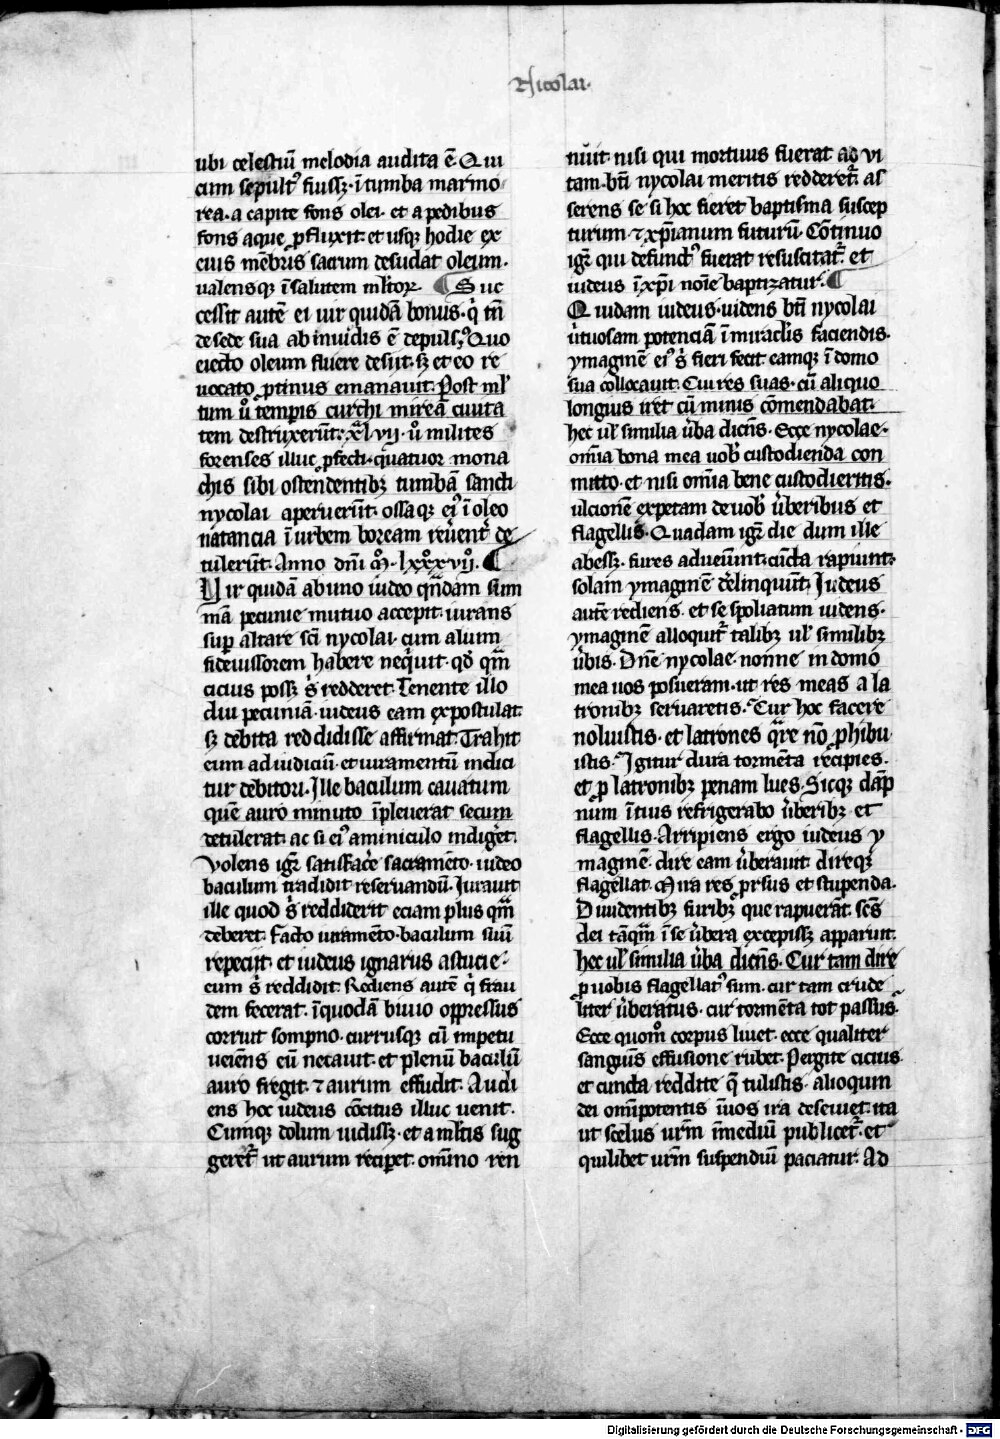 Nicolai·
ubi celestiū melodia audita ē Qui
cum sepult᷒ fuissꝫ· ī tumba marmo
rea· a capite fons olei· et a pedibus
fons aque ꝓfluxit· et usqꝫ hodie ex
eius mēbris sacrum desudat oleum·
valensqꝫ ī salutem ml̄toꝝ· ¶ Suc
cessit autē ei uir quidā bonus· q̇ tn̄
de sede sua ab inuidis ē depuls᷒· Quo
eiecto oleum fluere desiit· sꝫ et eo re
uocato ꝓtinus emanauit· Post ml̄
tum u̇ temꝑis turchi mireā ciuita
tem destruxerūt· xl vii· u̇ milites
forenses illuc ꝓfecti· q̄tuor mona
chis sibi ostendentibꝫ tumbā sancti
nycolai aperuerūt· ossaqꝫ ei᷒ ī oleo
natancia ī urbem boream reūent̄ de
tulerūt· Anno dn̄i m̊· lxxxvii̊· ¶
Uir quidā ab uno iudeo qn̄dam sum
mā pecunie mutuo accepit· iurans
suꝑ altare sc̄i nycolai· cum alium
fideiussorem habere neq̇uit· qd̄ qm̄
cicius possꝫ s̄ redderet· Tenente illo
diu pecuniā· iudeus eam expostulat·
sꝫ debita reddidisse affirmat· Trahit
eum ad iudiciū· et iuramentū indici
tur debitori· Ille baculum cauatum
quē auro minuto īpleuerat secum
detulerat· ac si ei᷒ aminiculo indiḡet·
Volens igr̄ satisfac̄e sacramēto· iudeo
baculum tradidit reseruandū· Iurauit
ille quod s̄ reddiderit eciam plus qm̄
deberet· Facto iuramēto· baculum suū
repeciit· et iudeus ignarus astucie·
eum s̄ reddidit· Rediens autē q̇ frau
dem fecerat· ī quodā biuio oppressus
corruit sompno· currusqꝫ cū impetu
ueiēns eū necauit· et plenū baculū
auro fregit· ⁊ aurum effudit· Audi
ens hoc iudeus cōcitus illuc uenit·
Cumqꝫ dolum uidissꝫ· et a ml̄tis sug
geret̄ ut aurum reciꝑet· omīno ren
nuit· nisi qui mortuus fuerat ad vi
tam· bt̄i nycolai meritis redderet̄· as
serens se si hoc fieret baptisma suscep
turum· ⁊ xp̄ianum futurū· Cōtinuo
igr̄ qui defunct᷒ fuerat resuscitat̄· et
iudeus ī xp̄i noīe baptizatur· ¶
Quidam iudeus· uidens bt̄i nycolai
u̇tuosam potenciā ī miraclis faciendis·
ymaginē ei᷒ s̄ fieri fecit eamqꝫ ī domo
sua collocauit· Cui res suas· cū aliquo
longius iret cū minis cōmendabat·
hec ul̄ similia u̇ba dicēns· Ecce nycolae·
om̄ia bona mea uob᷒ custodienda con
mitto· et nisi om̄ia bene custodieritis·
ulcionē expetam de uob᷒ u̇beribus et
flagellis· Quadam igr̄ die dum ille
abessꝫ· fures adueniūt· cūcta rapiunt·
solam ymaginē d̄elinquūt· Iudeus
autē rediens· et se spoliatum uidens·
ymaginē alloquit̄ talibꝫ ul̄ similibꝫ
u̇bis· Dn̄e nycolae· nonne in domo
mea uos posueram· ut res meas a la
tronibꝫ seruaretis· Cur hoc facere
noluistis· et latrones q̄re nō ꝓhibu
istis· Igitur dura tormēta recipies·
et ꝓ latronibꝫ penam lues· Sicqꝫ dāp
num ītius refrigerabo u̇beribꝫ et
flagellis· Arripiens ergo iudeus y
maginē· dire eam u̇berauit direqꝫ
flagellat· Mira res ꝓrsus et stupenda·
Diuidentibꝫ furibꝫ que rapuerāt· sc̄s
dei tāqm̄ ī se u̇bera excepissꝫ apparuit·
hec ul̄ similia u̇ba dicēns· Cur tam dire
ꝓ uobis flagellat᷒ sum· cur tam crude
liter u̇beratus· cur tormēta tot passus·
Ecce quom̊ corpus liuet· ecce qualiter
sanguīs effusione rubet· Pergite cicius
et cuncta reddite q̄ tulistis· alioqum
dei om̄ipotentis ī uos ira deseuiet· ita
ut scelus ur̄m ī mediū publicet̄· et
quilibet ur̄m suspendiū paciatur· Ad
Digitalisierung gefördert durch die Deutsche Forschungsgemeinschaft - DFG